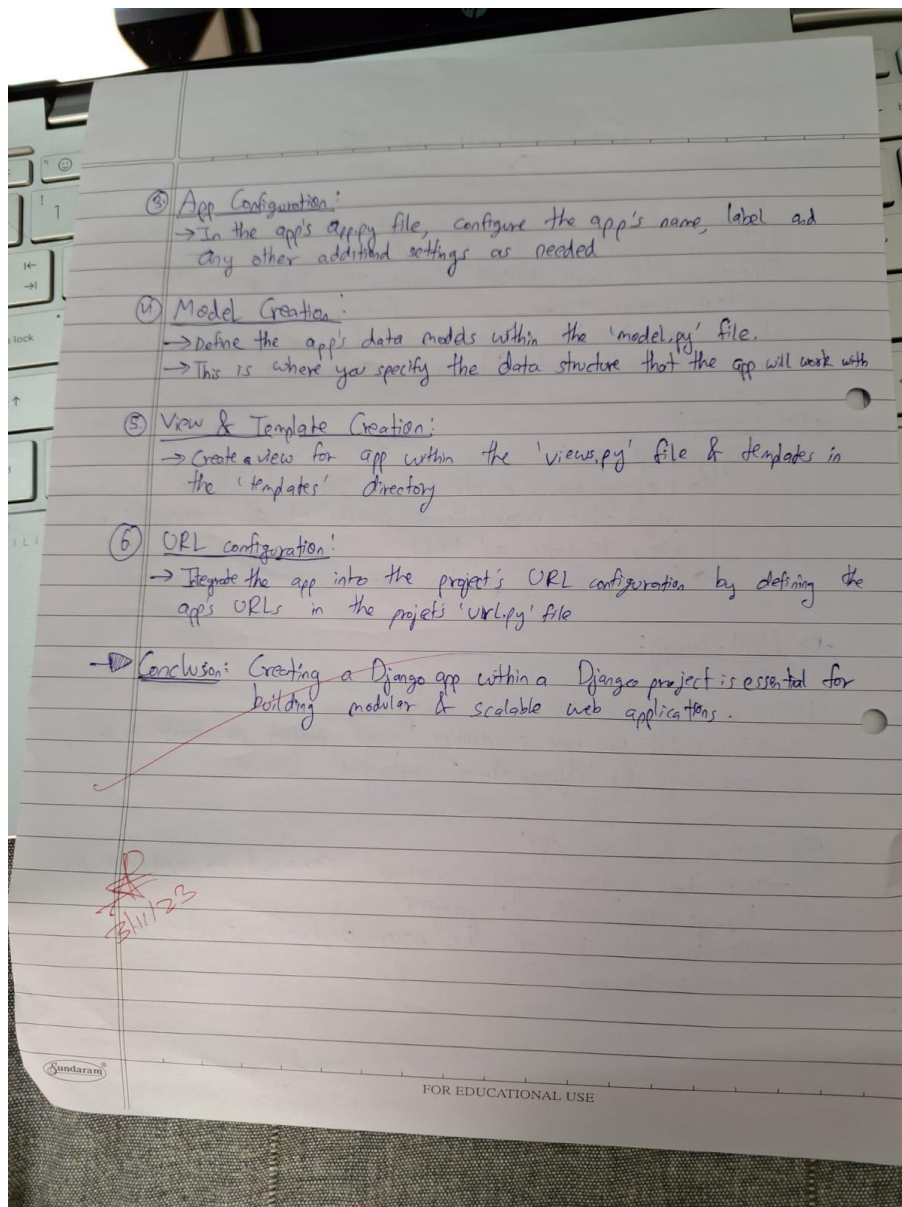 ③ App Configuration:
→ In the app's app.py file, configure the app's name, label and
any other additiond settings as needed
④ Model Creation:
→ Define the app's data models within the 'model.py' file.
→ This is where you specify the data structure that the app will work with
⑤ View & Template Creation:
→ Create a view for app within the 'views.py' file & templates in
the 'templates' directory
⑥ URL configuration:
→ Integrate the app into the project's URL configuration by defining the
app's URLs in the projets 'url.py' file
Conclusion: Creating a Django app within a Django project is essential for
building modular & scalable web applications.
3/11/23
Sundaram
FOR EDUCATIONAL USE